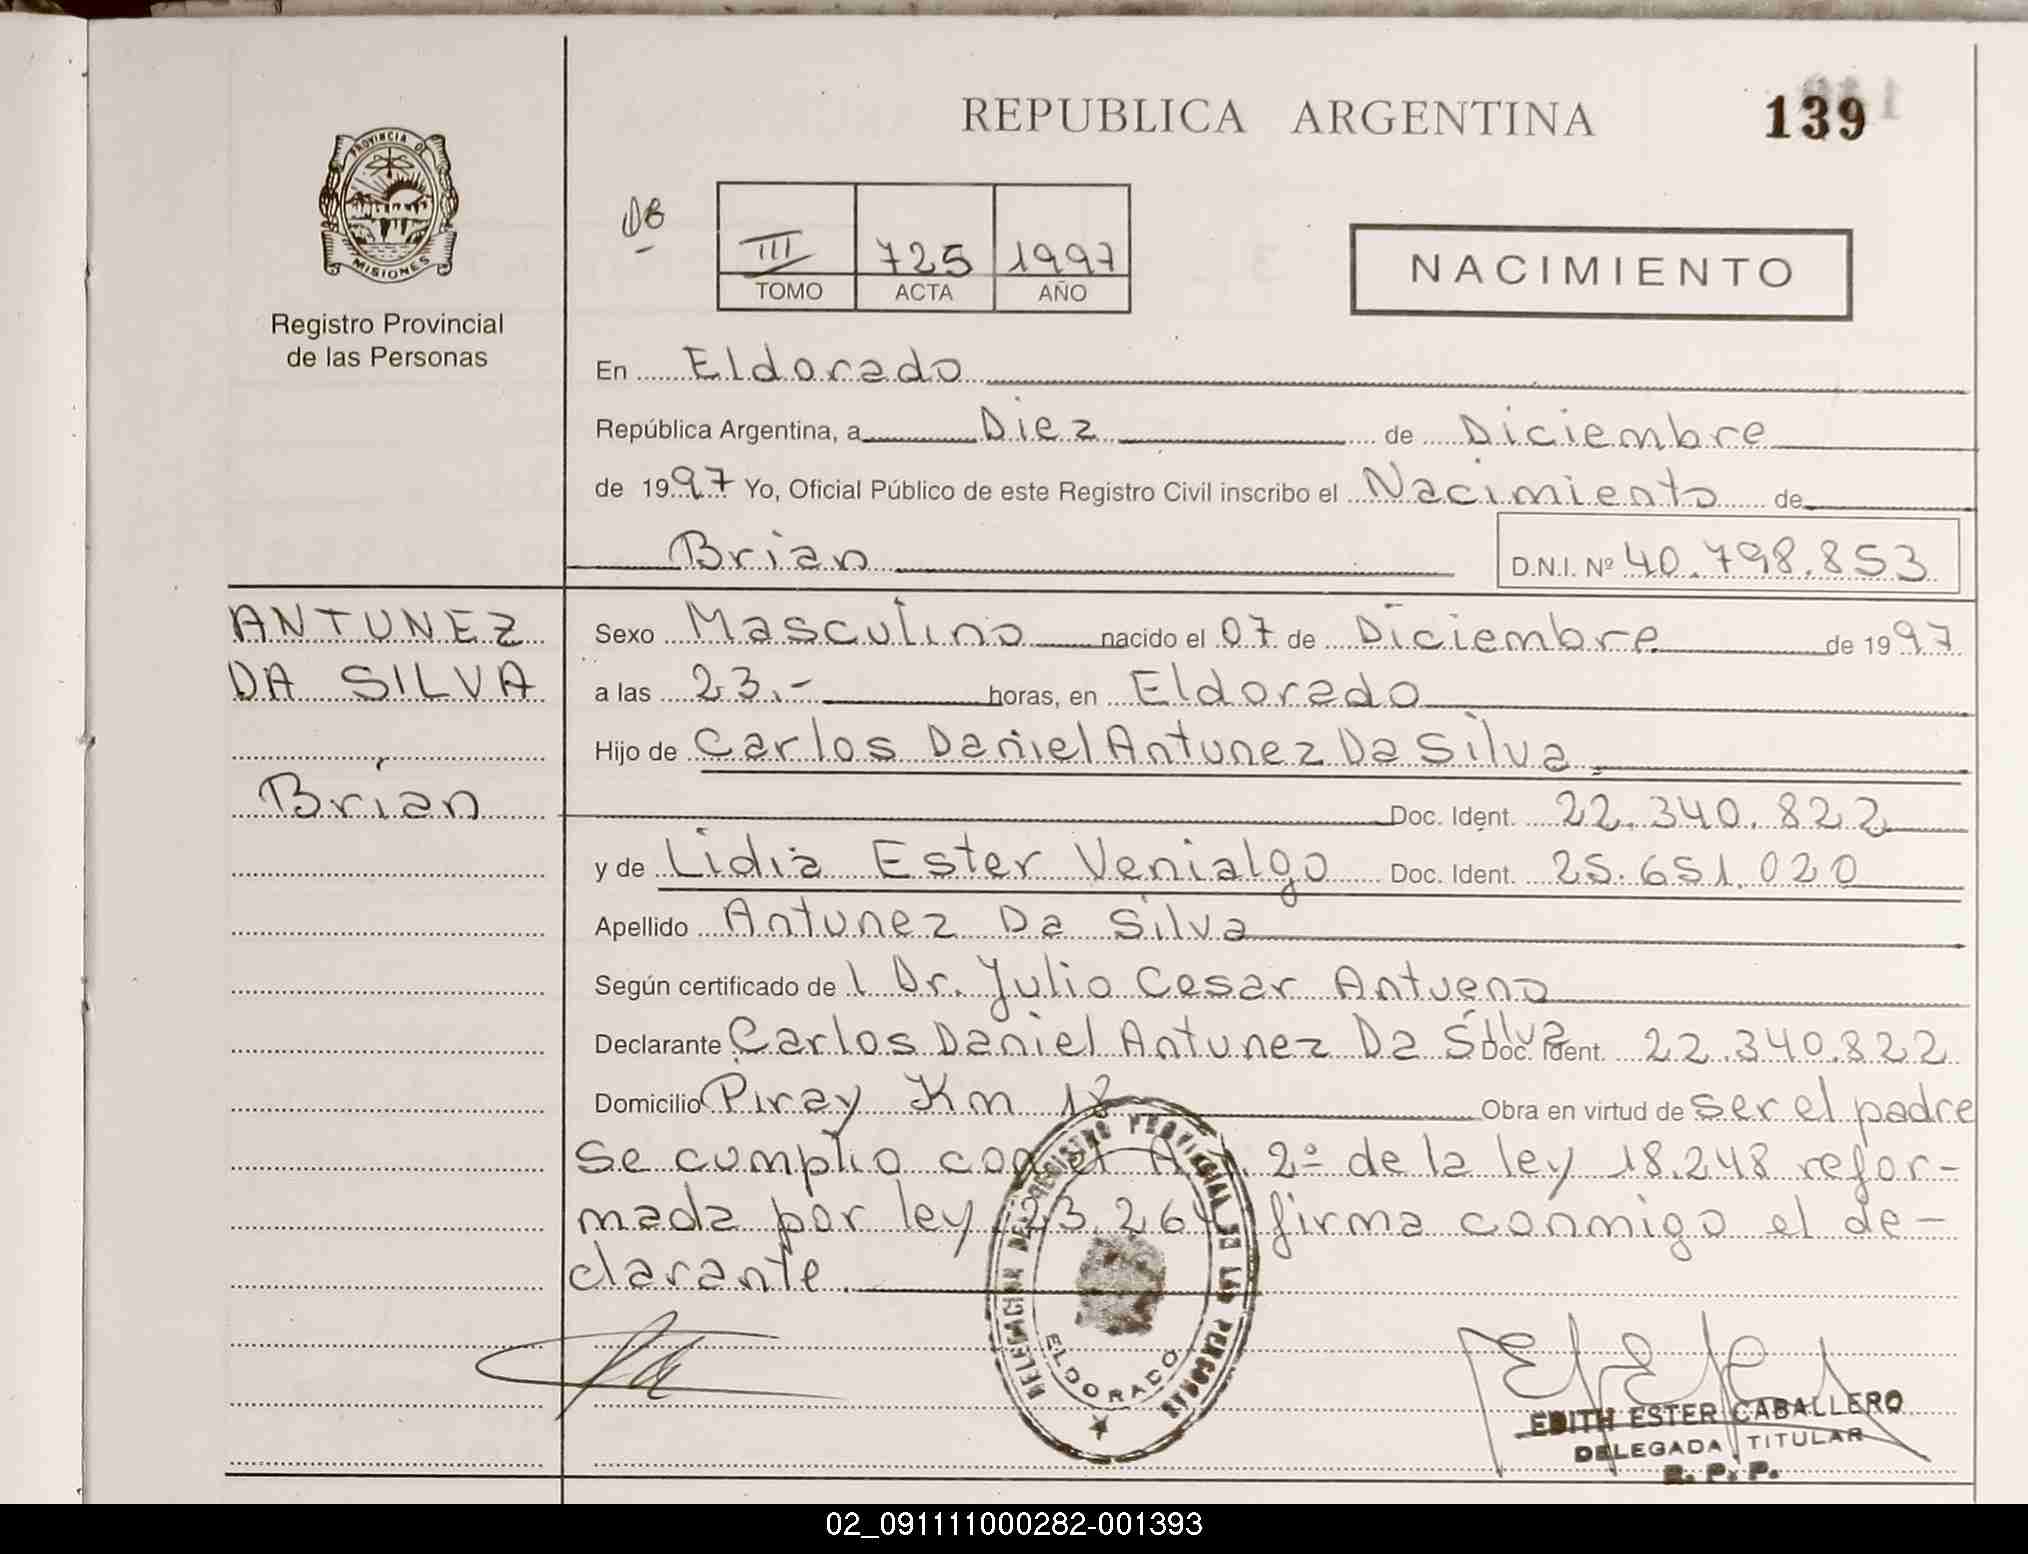 REPUBLICA ARGENTINA
139
PROVINCIA DE
MISIONES
Registro Provincial
de las Personas
III 725 1997
TOMO ACTA AÑO
NACIMIENTO
En Eldorado
República Argentina, a Diez de Diciembre
de 1997 Yo, Oficial Público de este Registro Civil inscribo el Nacimiento de
Brian D.N.I. Nº 40.798.853
ANTUNEZ
DA SILVA
Brian
Sexo Masculino nacido el 07 de Diciembre de 1997
a las 23.- horas, en Eldorado
Hijo de Carlos Daniel Antunez Da Silva
Doc. Ident. 22.340.822
y de Lidia Ester Venialgo Doc. Ident. 25.651.020
Apellido Antunez Da Silva
Según certificado de l Dr. Julio Cesar Antueno
Declarante Carlos Daniel Antunez Da Silva Doc. Ident. 22.340.822
Domicilio Piray Km 18 Obra en virtud de ser el padre
Se cumplio con el Art. 2º de la ley 18.248 refor-
mada por ley 23.264 firma conmigo el de-
clarante.
DELEGACION DEL REGISTRO PROVINCIAL DE LAS PERSONAS
ELDORADO
EDITH ESTER CABALLERO
DELEGADA TITULAR
R. P. P.
02_091111000282-001393